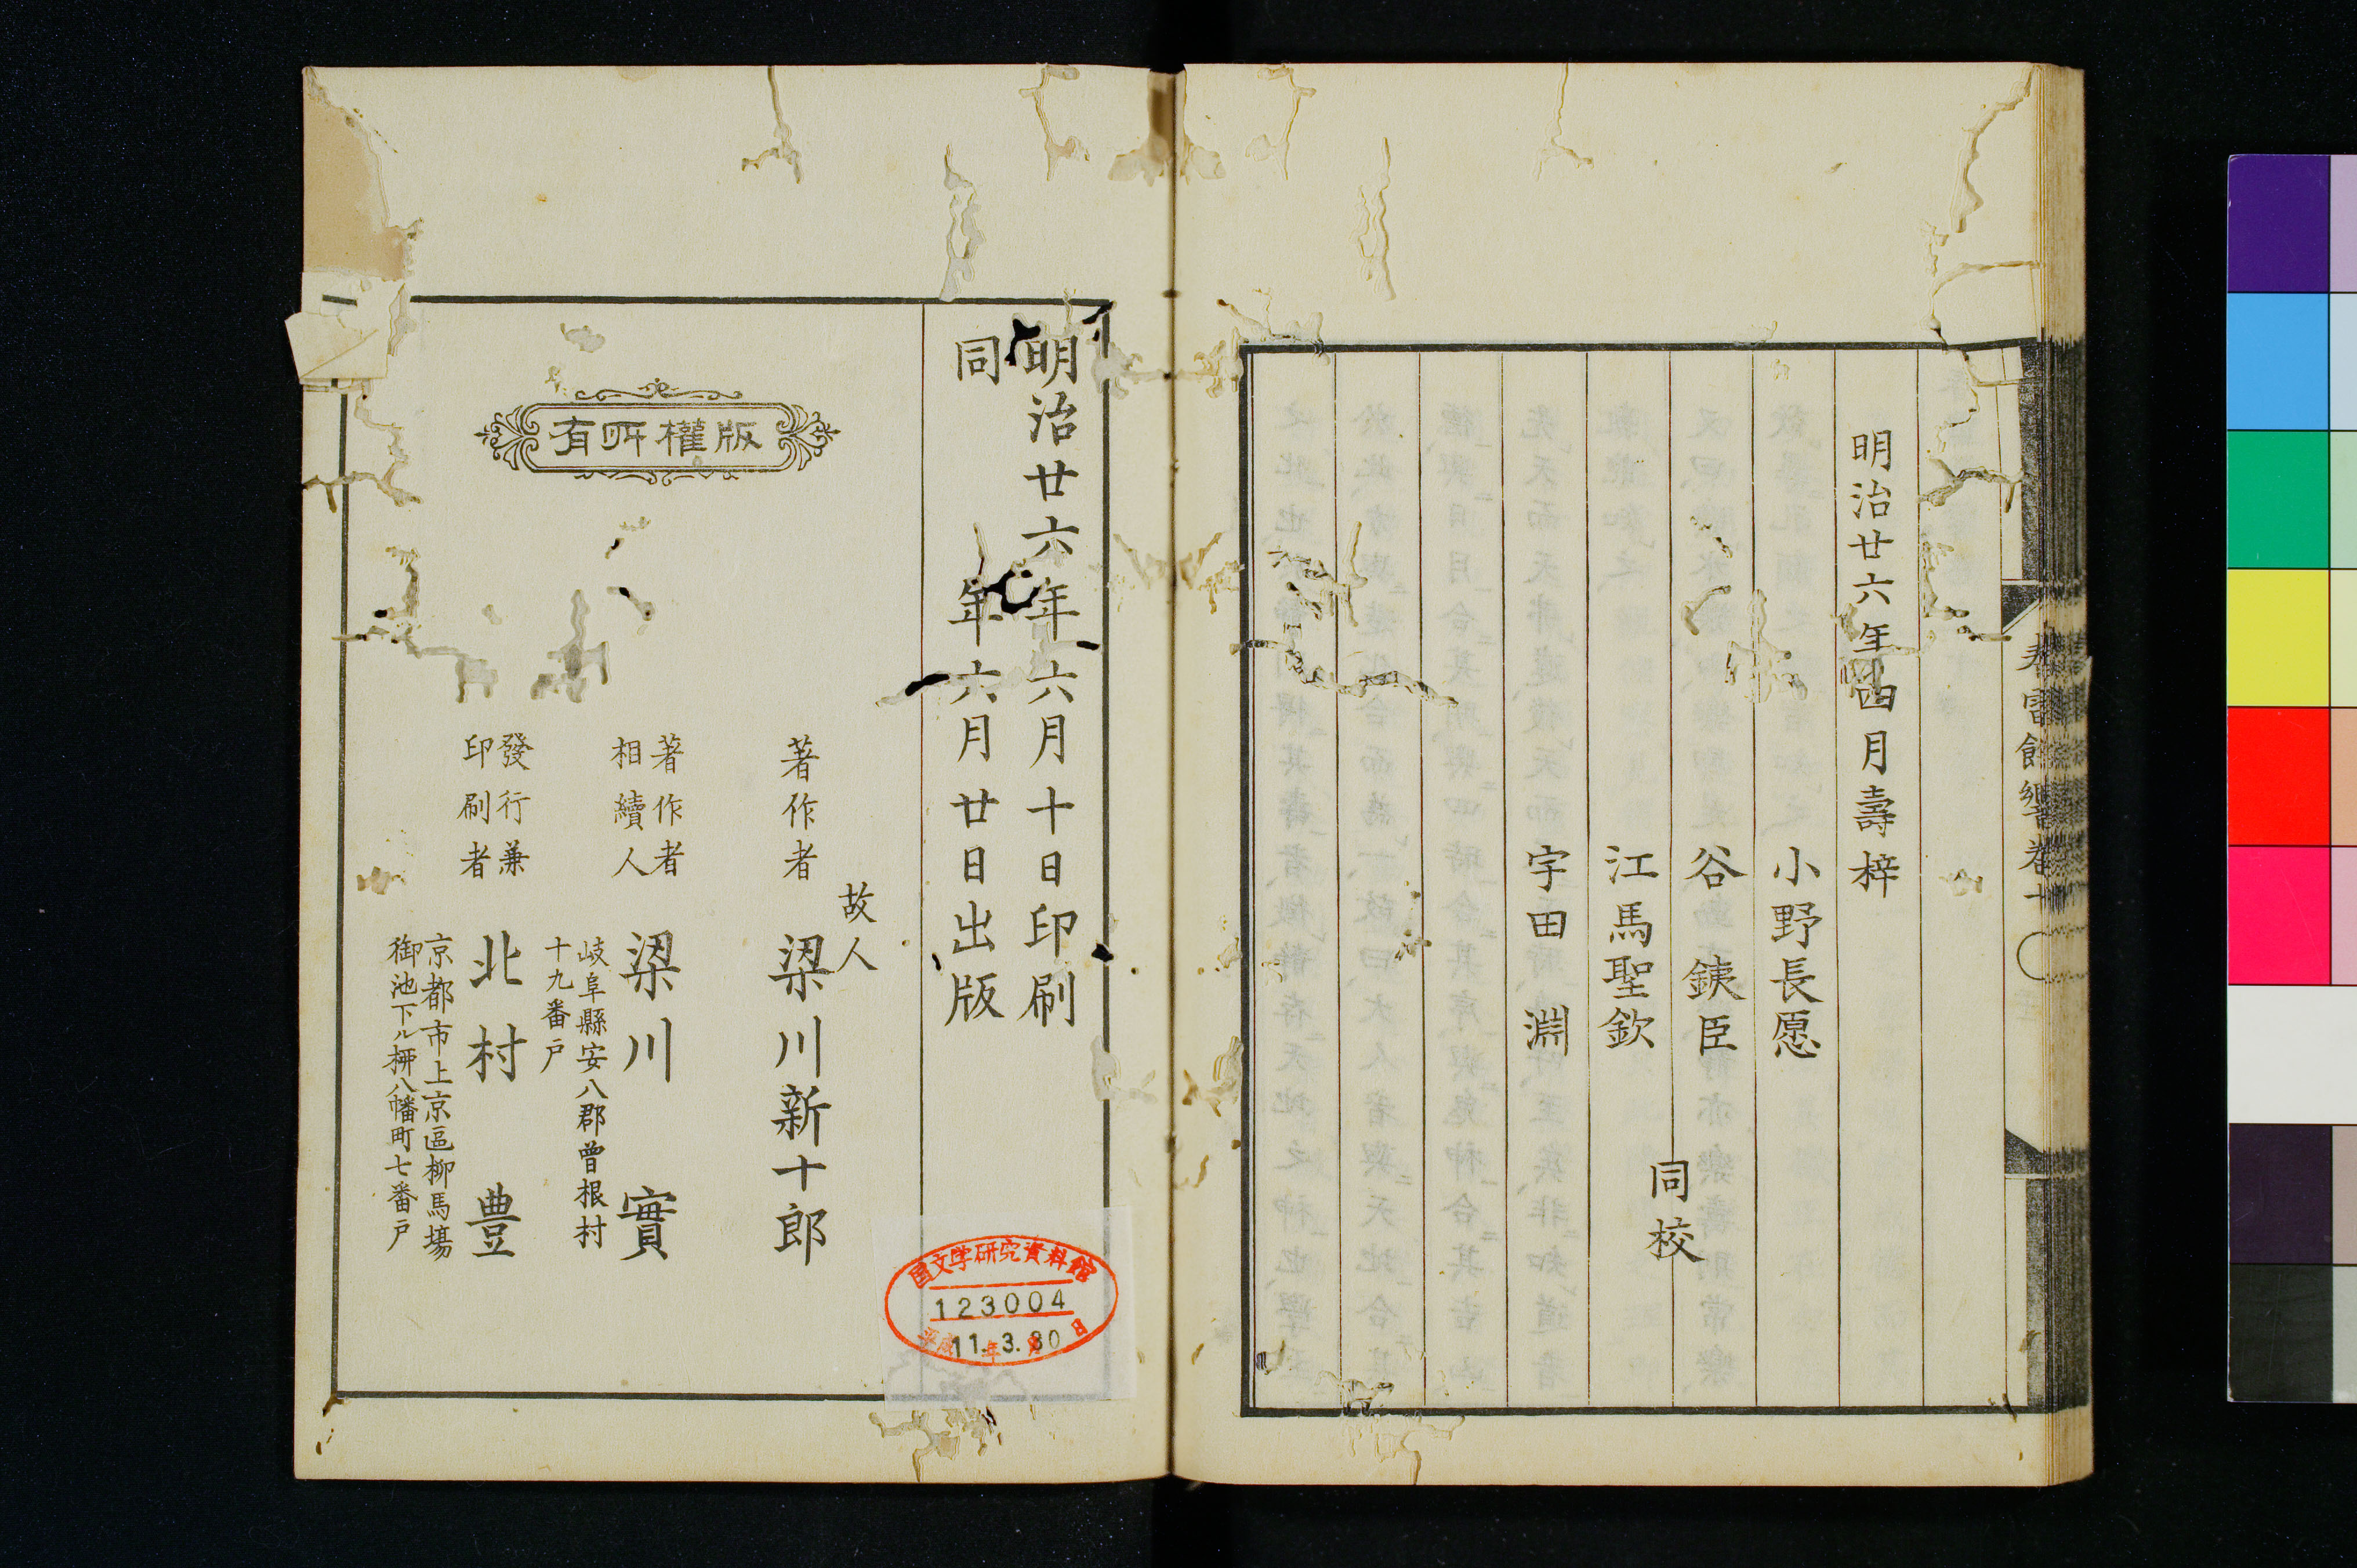 明治廿六年四月壽梓
小野長愿
谷鐵臣
江馬聖欽
宇田淵
同校
明治廿六年六月十日印刷
同年六月廿日出版
版權所有
故人
著作者 梁川新十郎
著作者
相續人
梁川實
岐阜縣安八郡曾根村
十九番戶
發行兼
印刷者
北村豊
京都市上京區柳馬場
御池下ル柳八幡町七番戶
国文学研究資料館
123004
平成11年3.30日